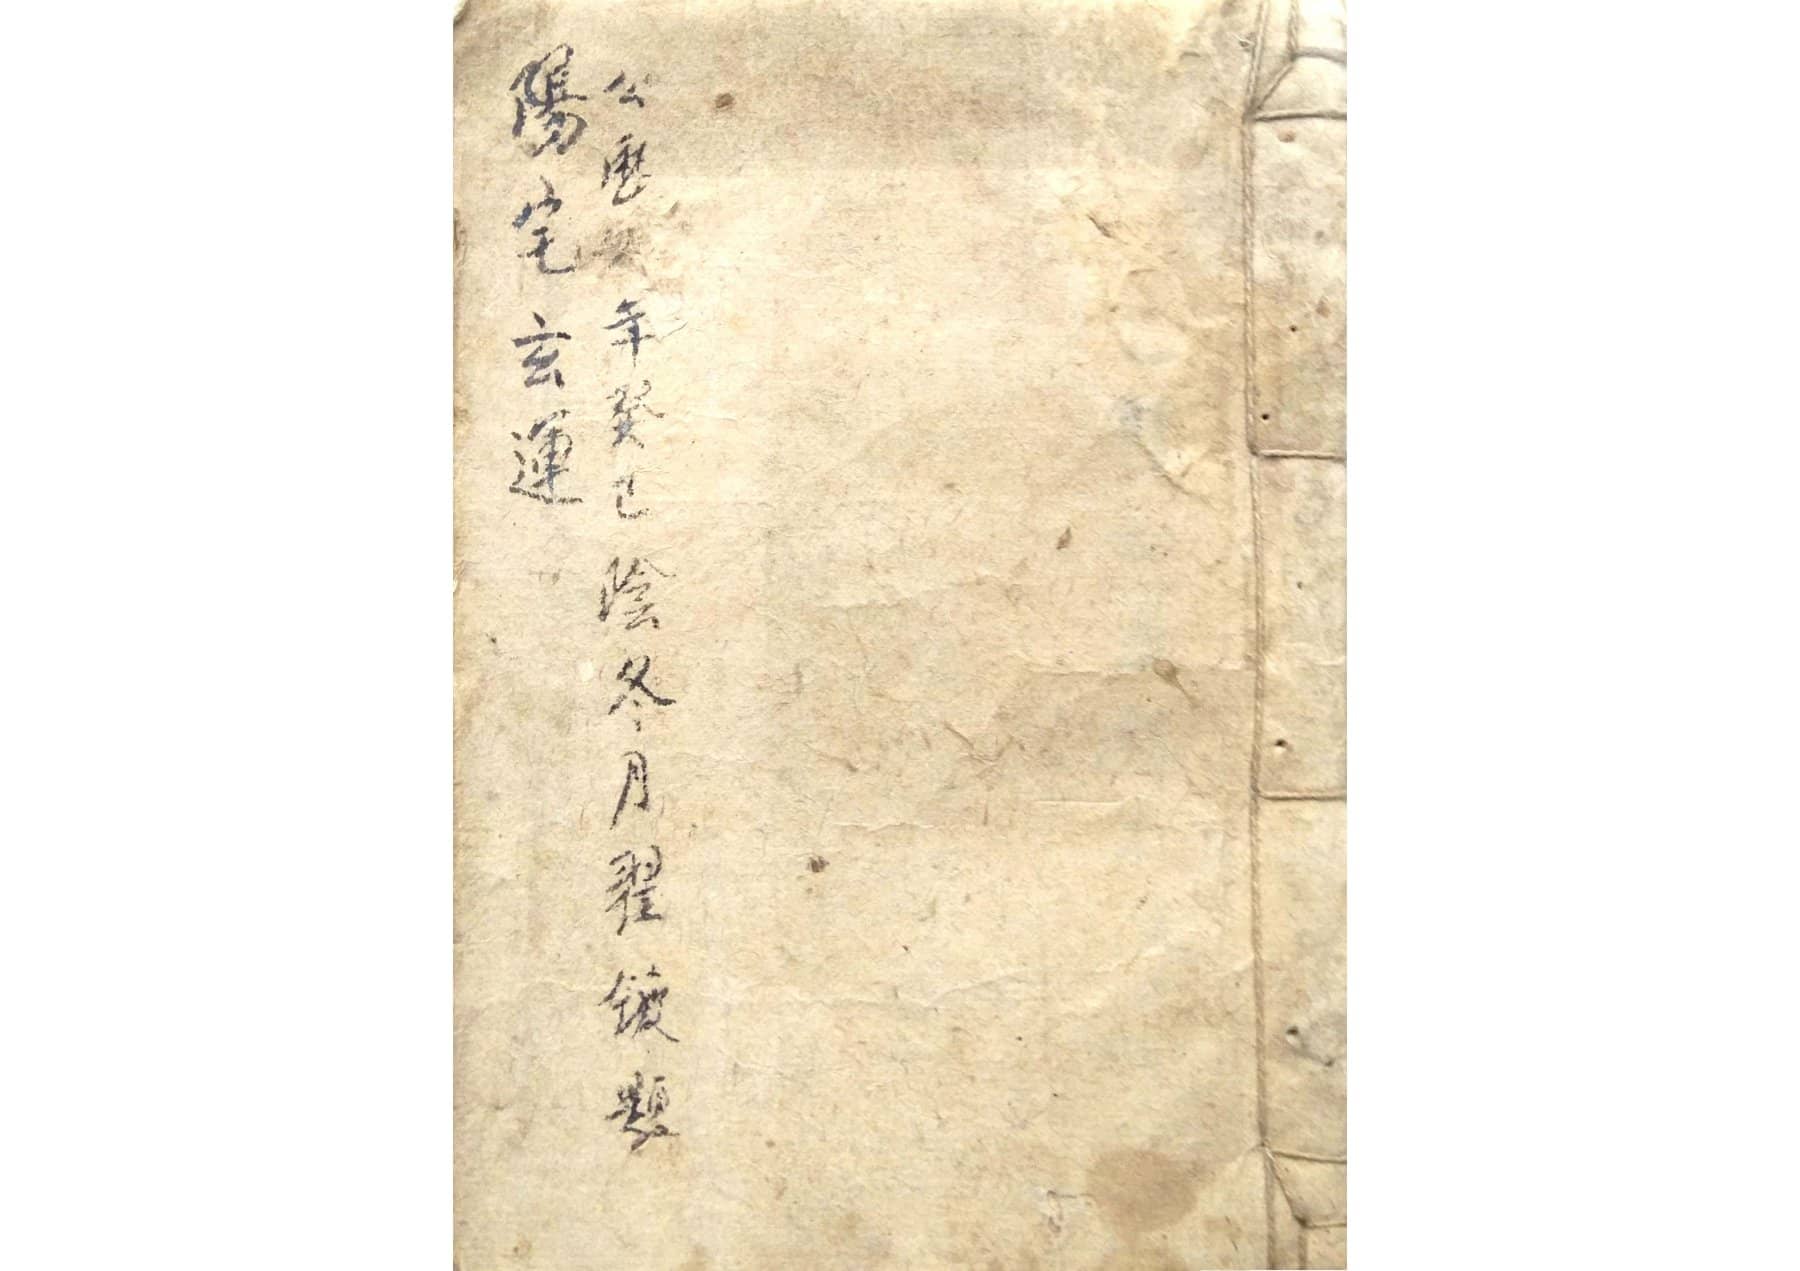 公歷年癸巳陰冬月翟鑀題
陽宅玄運